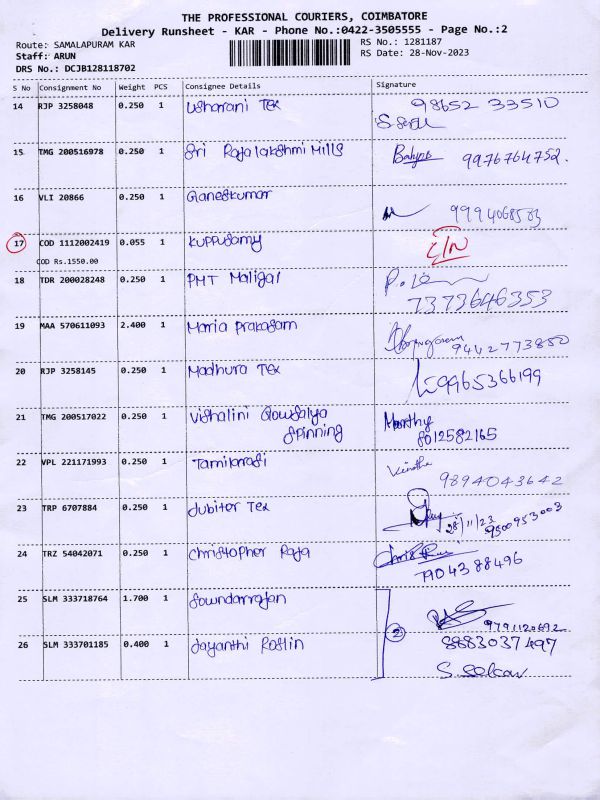 THE PROFESSIONAL COURIERS, COIMBATORE
Delivery Runsheet - KAR - Phone No.:0422-3505555 - Page No.:2
Route: SAMALAPURAM KAR
RS No.: 1281187
Staff: ARUN
RS Date: 28-Nov-2023
DRS No.: DCJB128118702
S No Consignment No Weight PCS Consignee Details Signature
14 RJP 3258048 0.250 1 Usharani Tex 98652 33510
15 TMG 200516978 0.250 1 Sri Rajalakshmi Mills 9976764752.
16 VLI 20866 0.250 1 Ganeskumar 9994068583
17 COD 1112002419 0.055 1 Kuppusamy
COD Rs.1550.00
18 TDR 200028248 0.250 1 PMT Maligai
7373646353
19 MAA 570611093 2.400 1 Maria Prakasam 9442773850
20 RJP 3258145 0.250 1 Madhura Tex 9965366199
21 TMG 200517022 0.250 1 Vishalini Gowsalya
Spinning 8012582165
22 VPL 221171993 0.250 1 Tamilarasi
9894043642
23 TRP 6707884 0.250 1 Jubiter Tex 28/11/23 9500953003
24 TRZ 54042071 0.250 1 Christopher Raja
7904388496
25 SLM 333718764 1.700 1 Sowndarrajan
2 9791120692
26 SLM 333701185 0.400 1 Jayanthi Roslin 8883037497